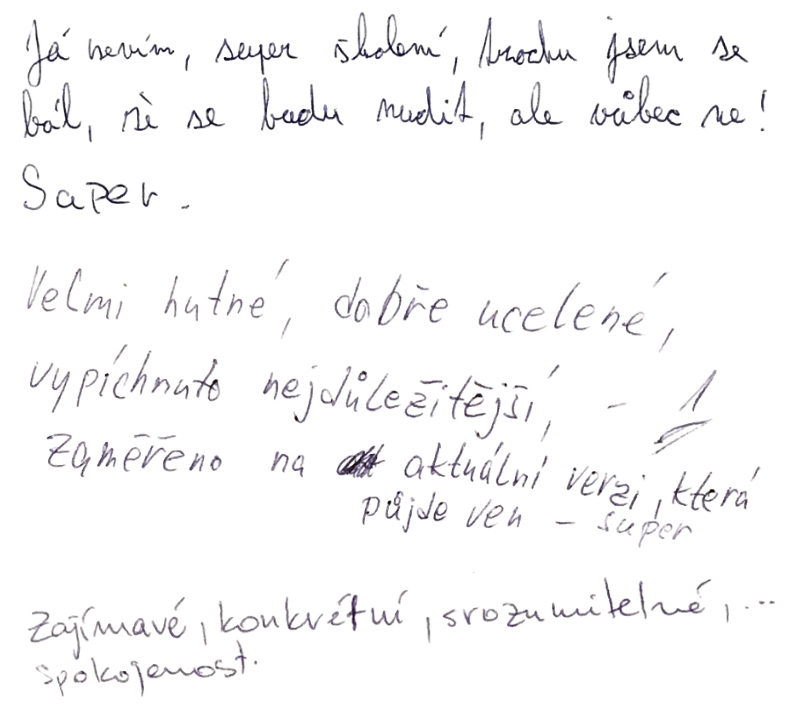 Já nevím, super školení, trochu jsem se
bál, že se budu nudit, ale vůbec ne!
Super.
Velmi hutné, dobře ucelené,
vypíchnuto nejdůležitější, - 1
zaměřeno na aktuální verzi, která
půjde ven - super
Zajímavé, konkrétní, srozumitelné, ...
spokojenost.